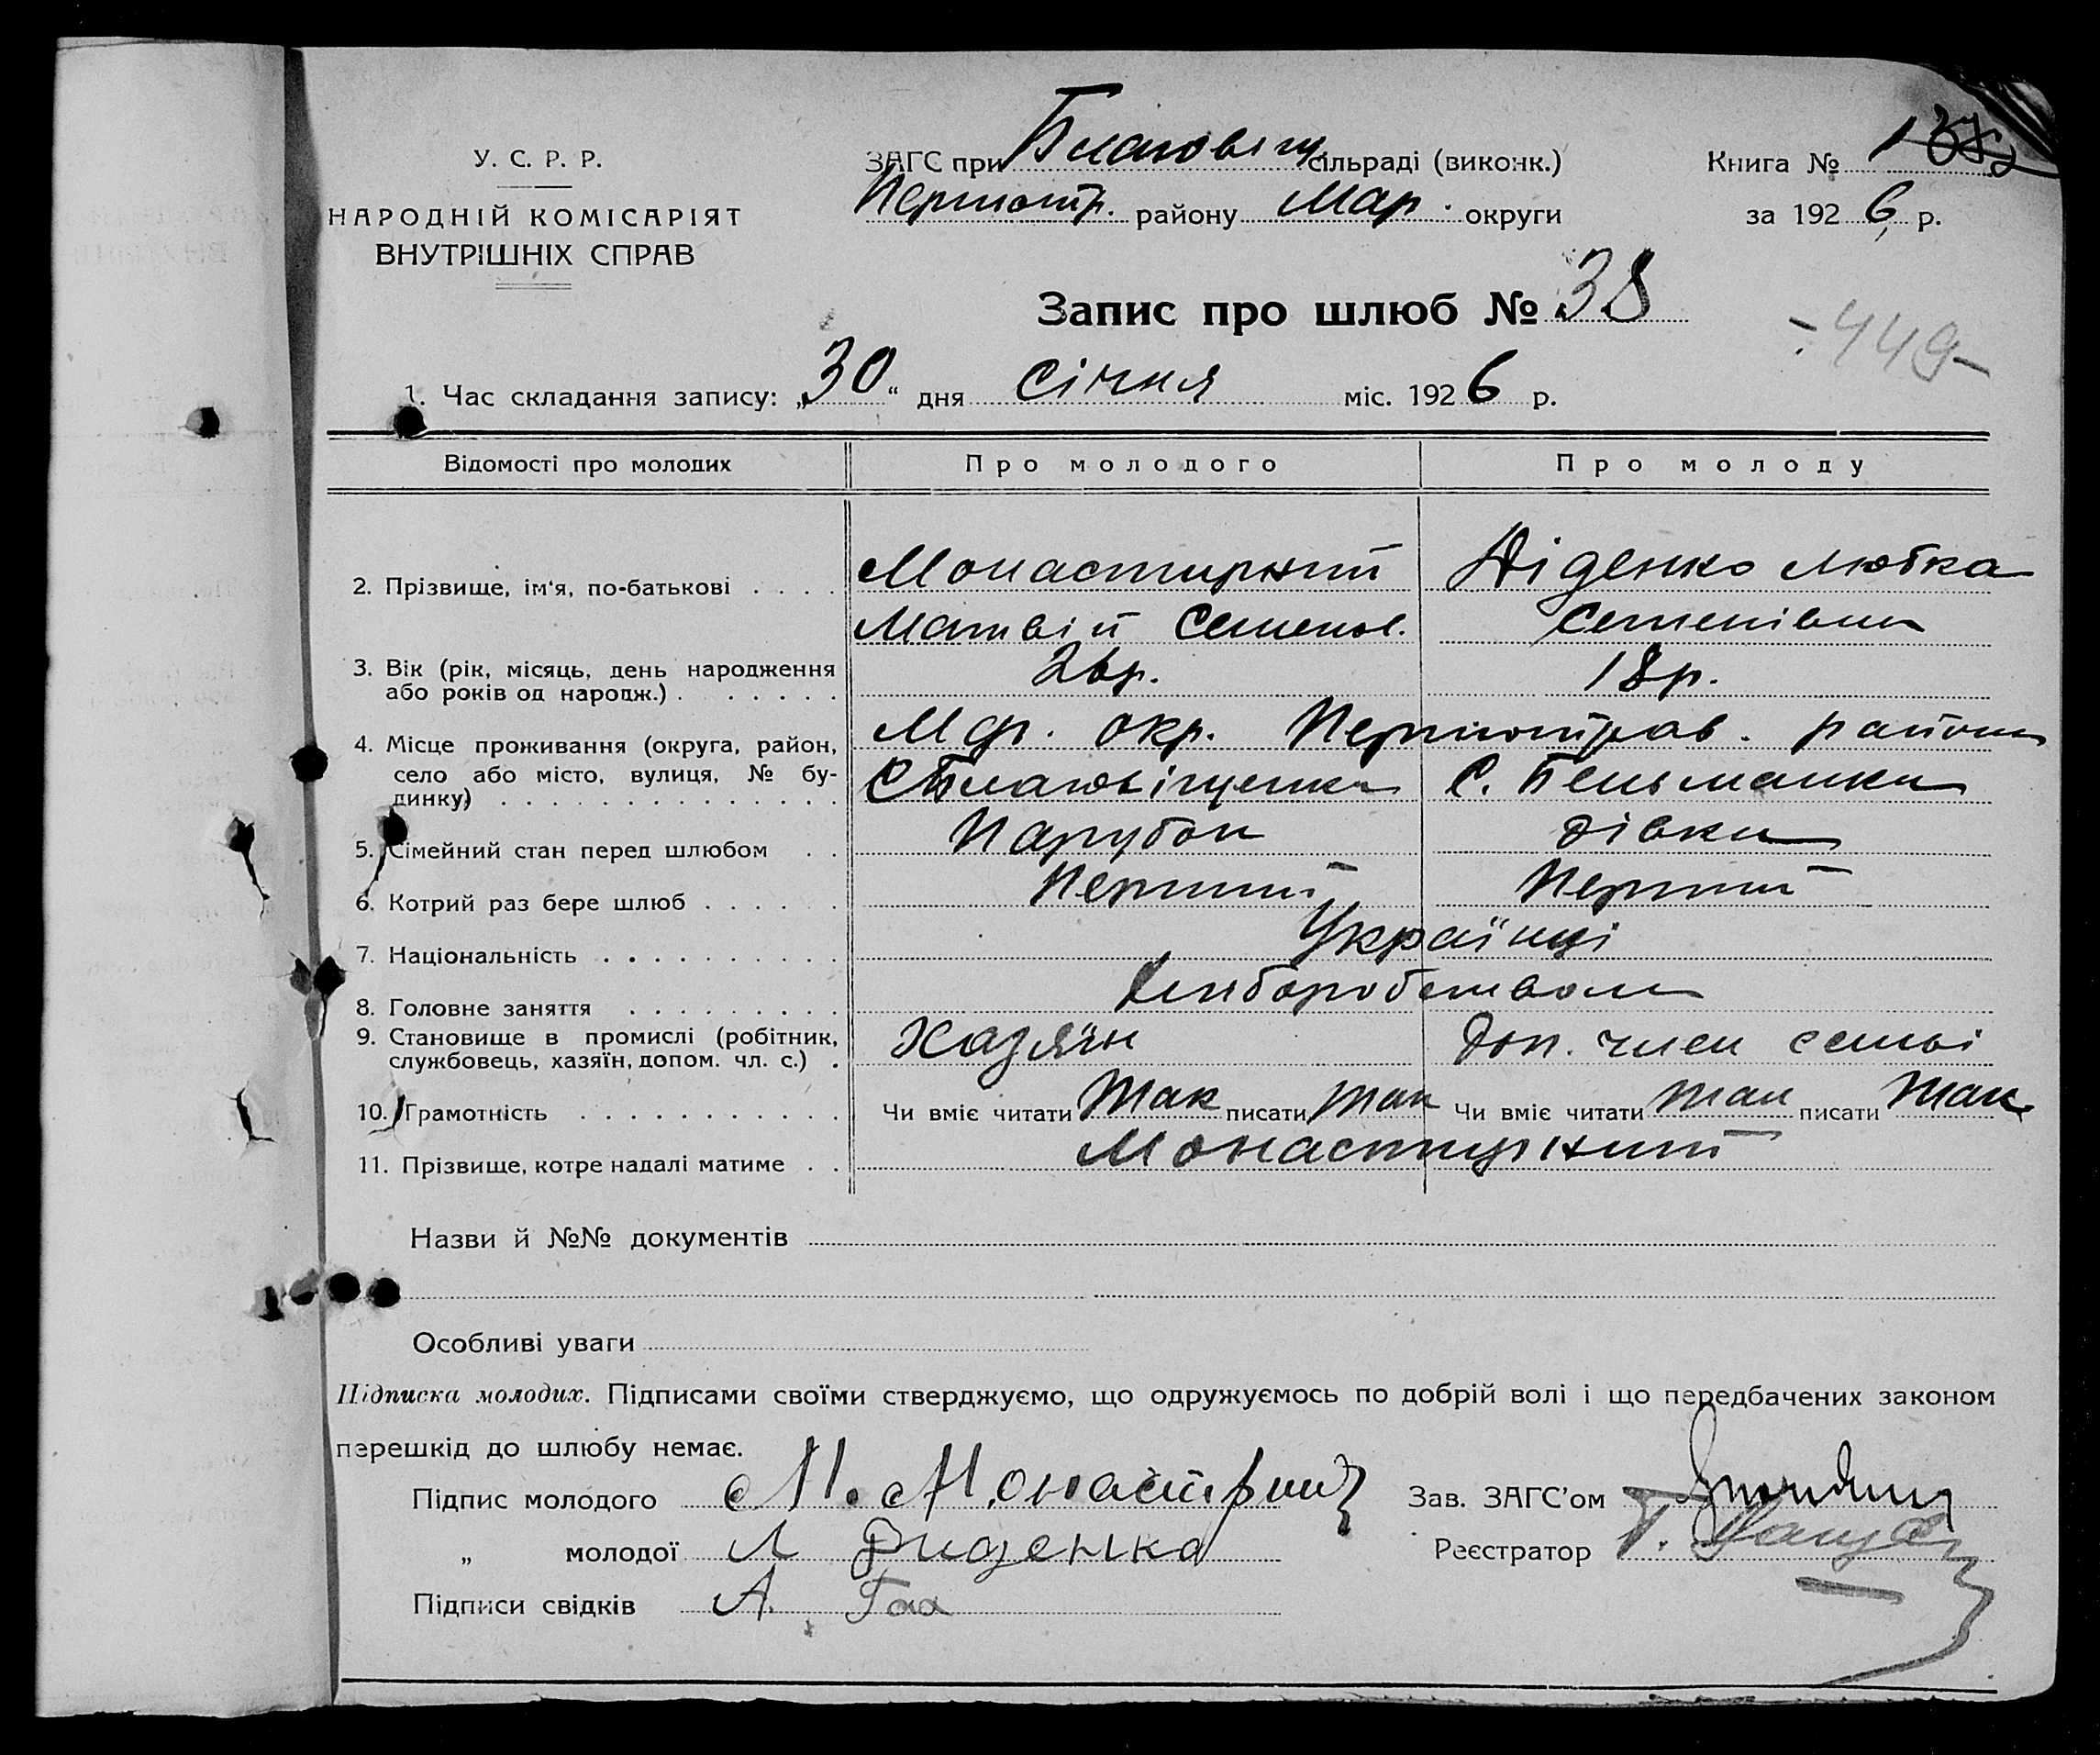 У. С. Р. Р.
НАРОДНІЙ КОМІСАРІЯТ
ВНУТРІШНІХ СПРАВ
ЗАГС при Благовіщ. сільраді (виконк.)
Першотр. району Мар. округи
Книга № 1
за 1926 р.
Запис про шлюб № 38
449
1. Час складання запису: „30“ дня Січня міс. 1926 р.
Відомості про молодих Про молодого Про молоду
2. Прізвище, ім'я, по-батькові Монастирний Діденко Любка
Матвій Семенов. Семенівна
3. Вік (рік, місяць, день народження
або років од народж.) 26 р. 18 р.
4. Місце проживання (округа, район, Мар. окр. Першотрав. району
село або місто, вулиця, № бу-
динку) С. Благовіщенка С. Бельманка
5. Сімейний стан перед шлюбом Парубок дівка
6. Котрий раз бере шлюб Перший Перший
7. Національність Українці
8. Головне заняття Хліборобством
9. Становище в промислі (робітник,
службовець, хазяїн, допом. чл. с.) Хазяїн доп. член семьї
10. Грамотність Чи вміє читати Так писати Так Чи вміє читати Так писати Так
11. Прізвище, котре надалі матиме Монастирний
Назви й №№ документів
Особливі уваги
Підписка молодих. Підписами своїми стверджуємо, що одружуємось по добрій волі і що передбачених законом
перешкід до шлюбу немає.
Підпис молодого М. Монастирний Зав. ЗАГС'ом
„ молодої Л Диденко Реєстратор Г.
Підписи свідків А. Гаа